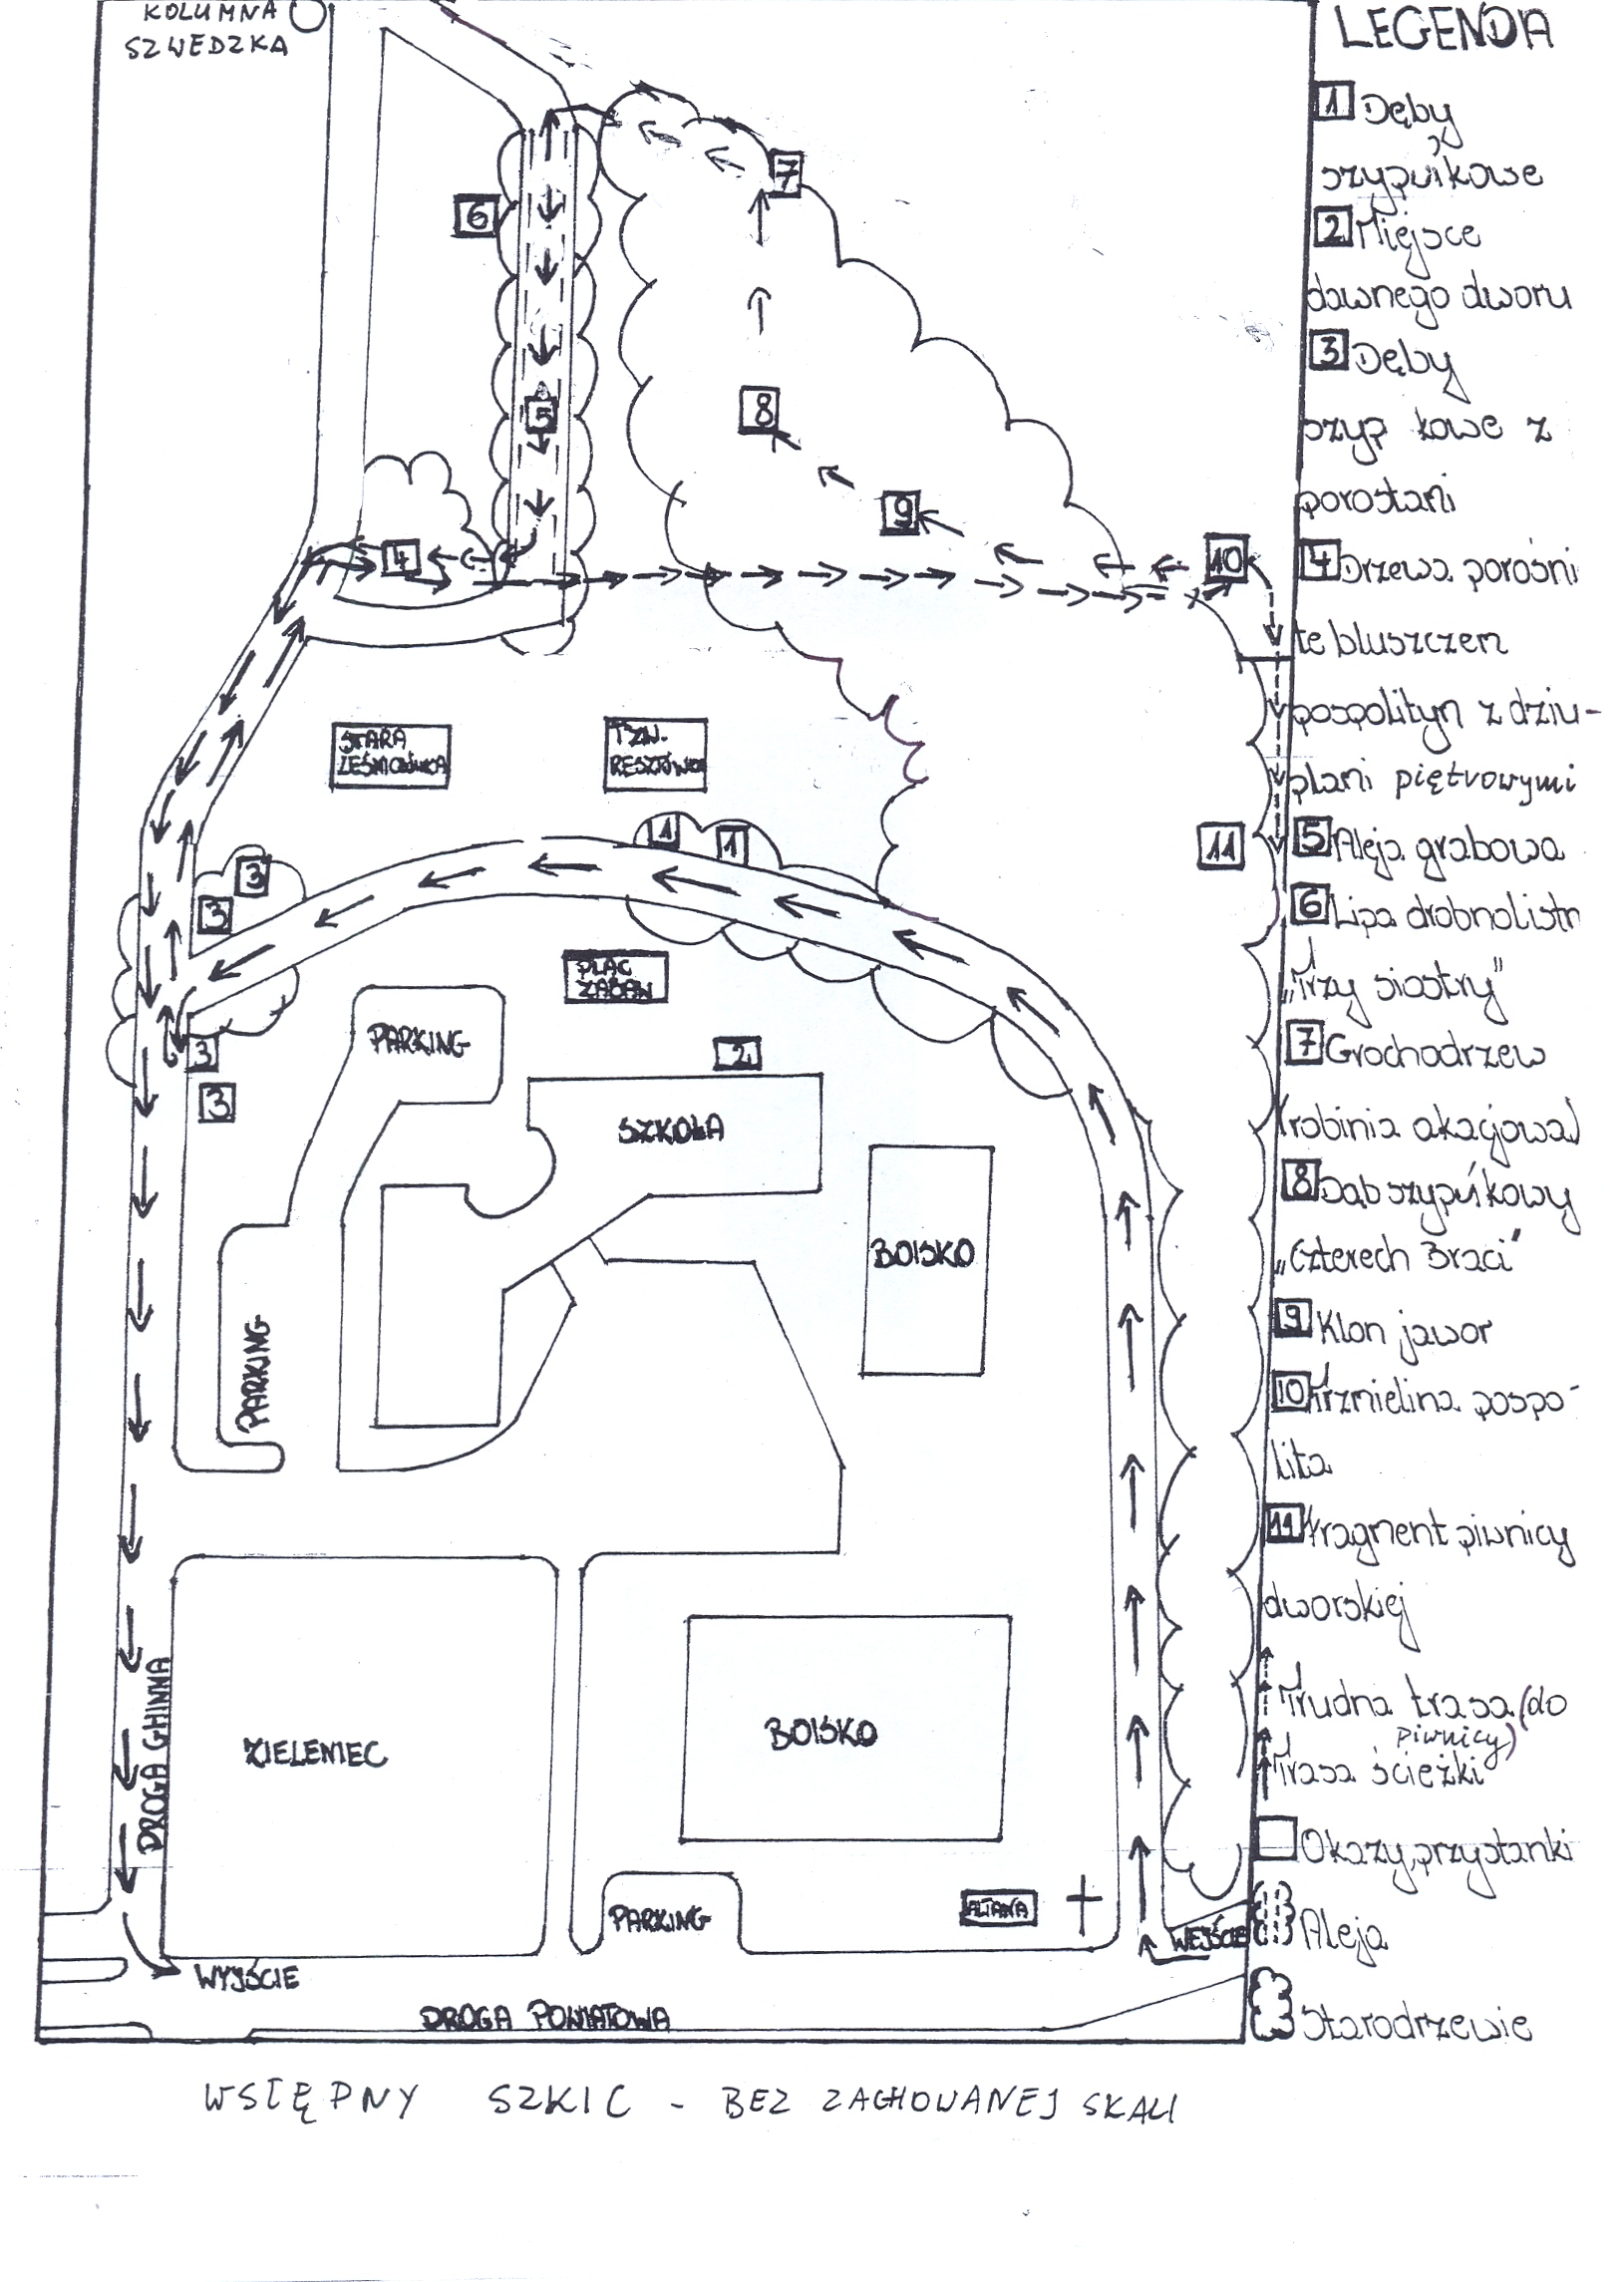 KOLUMNA
SZWEDZKA
LEGENDA
1 Dęby
szypułkowe
2 Miejsce
dawnego dworu
3 Dęby
szyp kowe z
porostami
4 Drzewa porośni
te bluszczem
pospolitym z dziu-
plami piętrowymi
5 Aleja grabowa
6 Lipa drobnolistn
„Trzy siostry”
7 Grochodrzew
(robinia akacjowa)
8 Dąb szypułkowy
„Czterech Braci”
9 Klon jawor
10 Trzmielina pospo-
lita
11 Fragment piwnicy
dworskiej
Trudna trasa (do
piwnicy)
Trasa ścieżki
Okazy, przystanki
Aleja
Starodrzewie
7
6
8
5
9
4
10
STARA
LEŚNICZÓWKA
TZW.
RESZTÓWKA
1
1
11
3
3
PLAC
ZABAW
PARKING
2
3
3
SZKOŁA
BOISKO
PARKING
DROGA GMINNA
ZIELENIEC
BOISKO
PARKING
ALTANA
WEJŚCIE
WYJŚCIE
DROGA POWIATOWA
WSTĘPNY SZKIC - BEZ ZACHOWANEJ SKALI